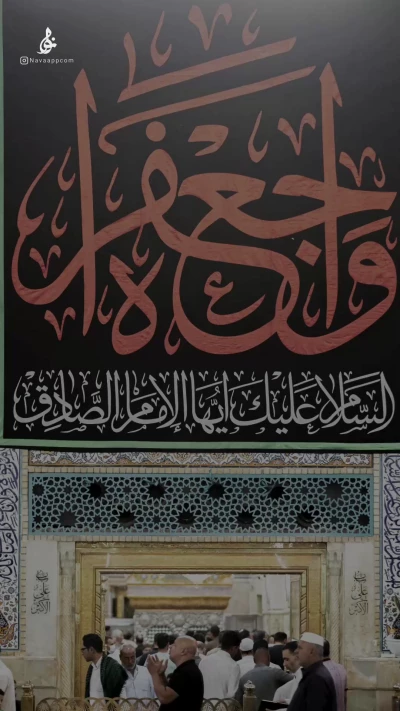 نوا
Navaappcom
وا جعفراه
السلام عليك أيها الإمام الصادق